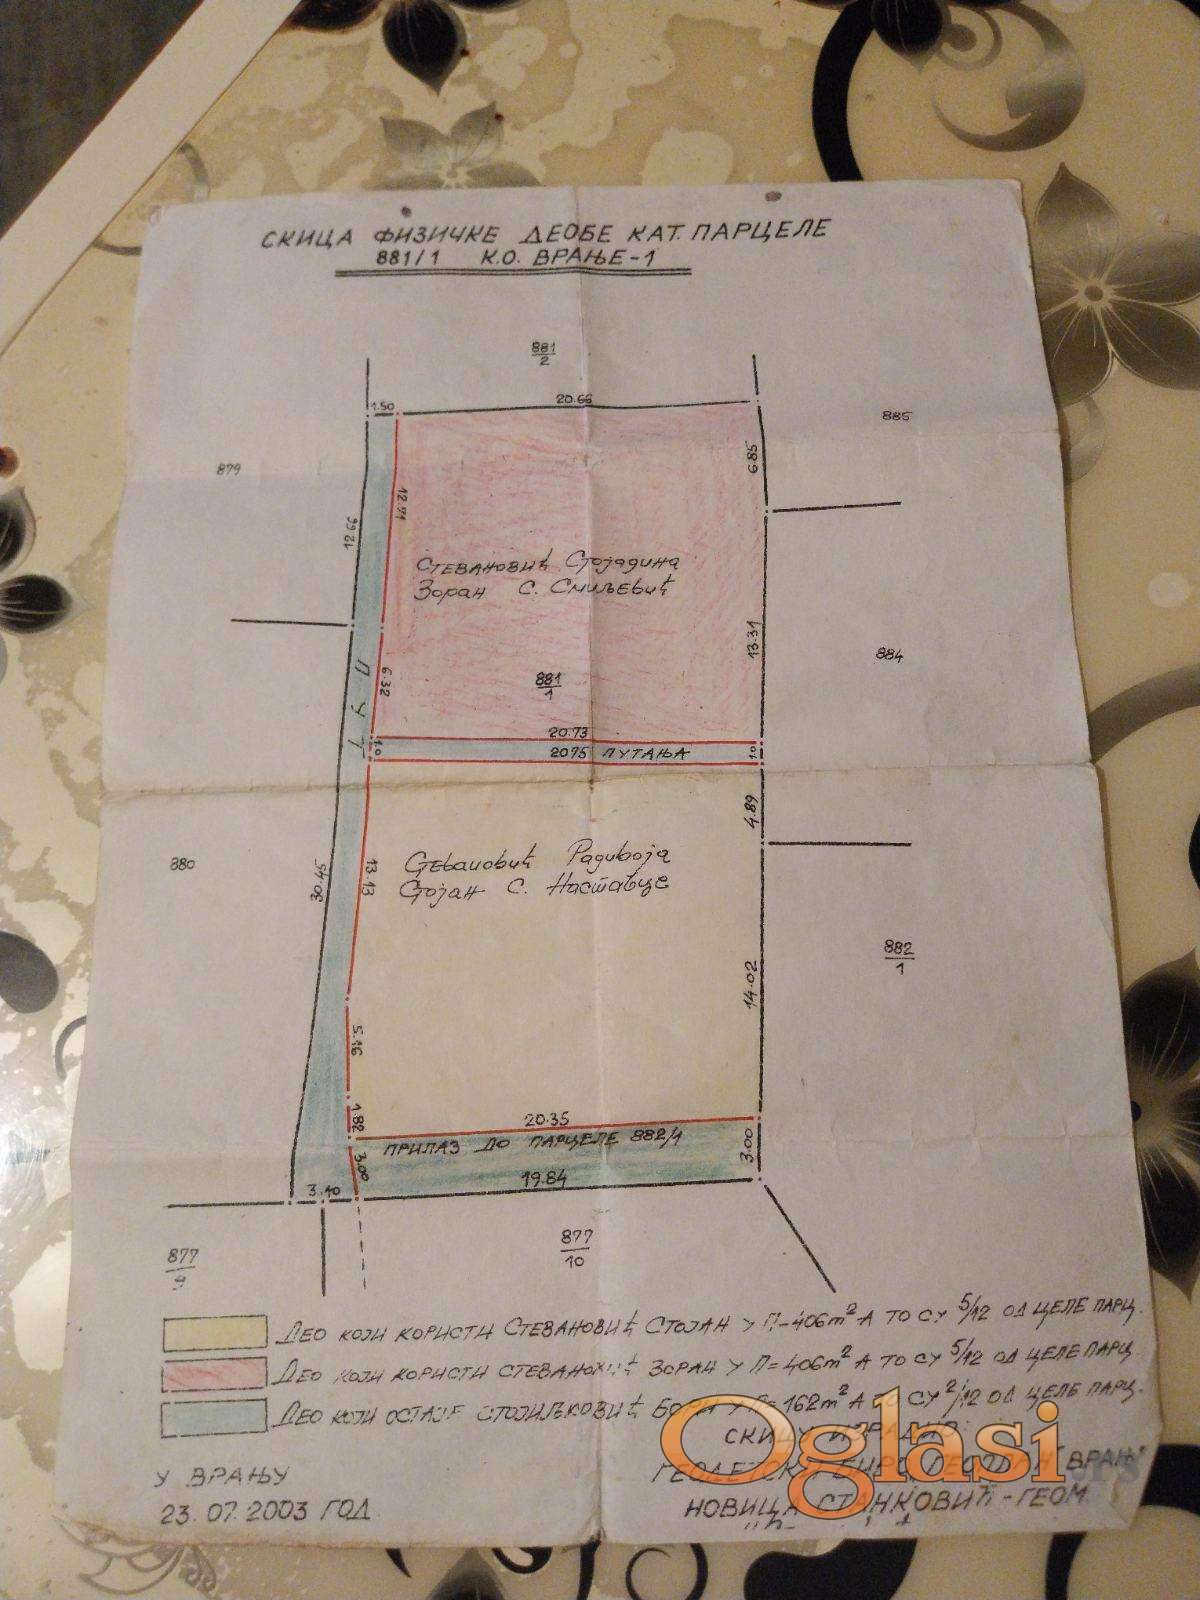 СКИЦА ФИЗИЧКЕ ДЕОБЕ КАТ. ПАРЦЕЛЕ
881/1 К.О. ВРАЊЕ-1
881
2
1.50
20.66
885
879
6.85
12.71
12.66
Стевановић Стојадина
Зоран С. Смиљевић
13.31
884
6.32
881
1
ПУТ
20.73
1.0
2075 ПУТАЊА
1.0
4.89
880
13.13
30.45
Стевановић Радивоја
Стојан С. Наставце
882
1
14.02
5.16
1.82
20.35
ПРИЛАЗ ДО ПАРЦЕЛЕ 882/1
3.00
3.00
19.84
3.10
877
9
877
10
ДЕО КОЈИ КОРИСТИ СТЕВАНОВИЋ СТОЈАН У П-406m² А ТО СУ 5/12 ОД ЦЕЛЕ ПАРЦ.
ДЕО КОЈИ КОРИСТИ СТЕВАНОВИЋ ЗОРАН У П=406m² А ТО СУ 5/12 ОД ЦЕЛЕ ПАРЦ.
ДЕО КОЈИ ОСТАЈЕ СТОЈИЉКОВИЋ БОРИ У П=162m² А ТО СУ 2/12 ОД ЦЕЛЕ ПАРЦ.
СКИЦУ ИЗРАДИО
У ВРАЊУ
ГЕОДЕТСКИ БИРО
23.07.2003 ГОД.
НОВИЦА СТАНКОВИЋ-ГЕОМ
Oglasi